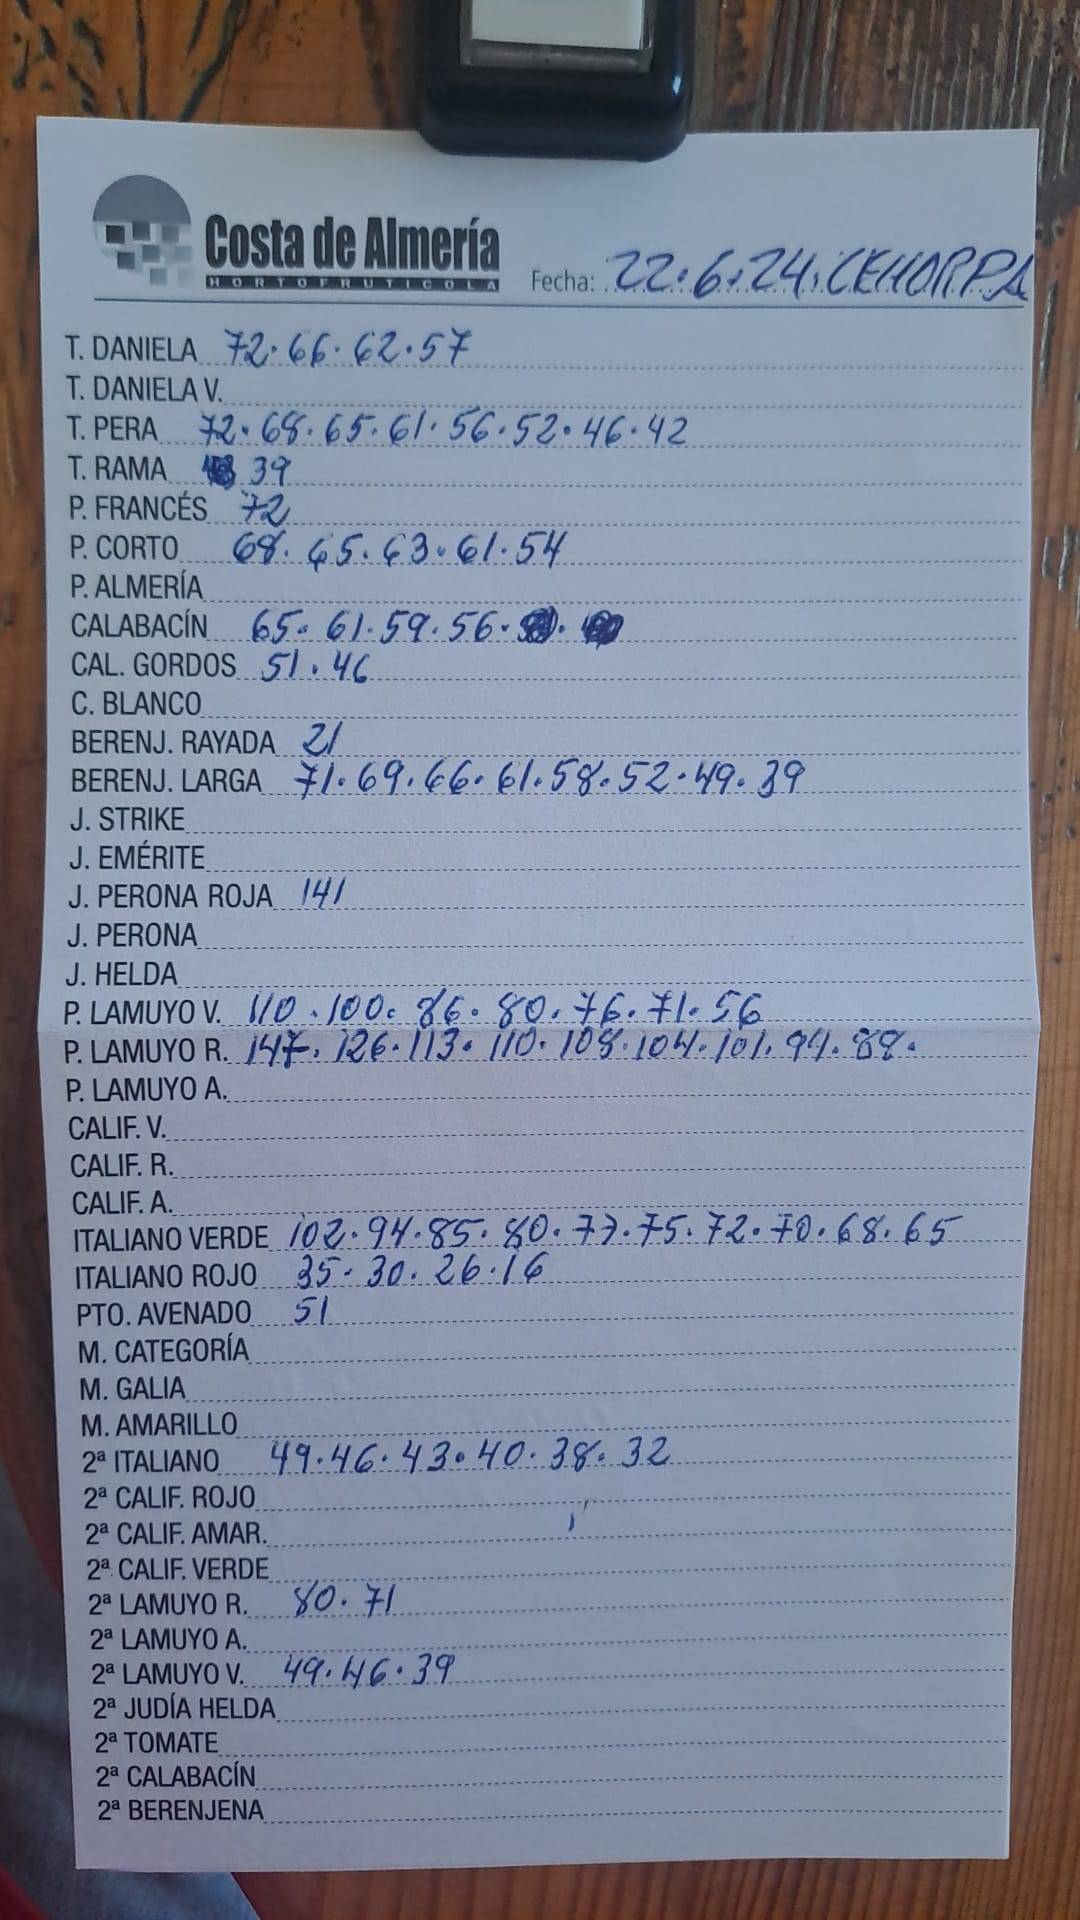 Costa de Almería
HORTOFRUTICOLA
Fecha: 22.6.24. CEHORPA
T. DANIELA 72.66.62.57
T. DANIELA V.
T. PERA 72.68.65.61.56.52.46.42
T. RAMA 39
P. FRANCÉS 72
P. CORTO 68.65.63.61.54
P. ALMERÍA
CALABACÍN 65.61.59.56.
CAL. GORDOS 51.46
C. BLANCO
BERENJ. RAYADA 21
BERENJ. LARGA 71.69.66.61.58.52.49.39
J. STRIKE
J. EMÉRITE
J. PERONA ROJA 141
J. PERONA
J. HELDA
P. LAMUYO V. 110.100.86.80.76.71.56
P. LAMUYO R. 147.126.113.110.108.104.101.94.88.
P. LAMUYO A.
CALIF. V.
CALIF. R.
CALIF. A.
ITALIANO VERDE 102.94.85.80.77.75.72.70.68.65
ITALIANO ROJO 35.30.26.16
PTO. AVENADO 51
M. CATEGORÍA
M. GALIA
M. AMARILLO
2ª ITALIANO 49.46.43.40.38.32
2ª CALIF. ROJO
2ª CALIF. AMAR.
2ª CALIF. VERDE
2ª LAMUYO R. 80.71
2ª LAMUYO A.
2ª LAMUYO V. 49.46.39
2ª JUDÍA HELDA
2ª TOMATE
2ª CALABACÍN
2ª BERENJENA